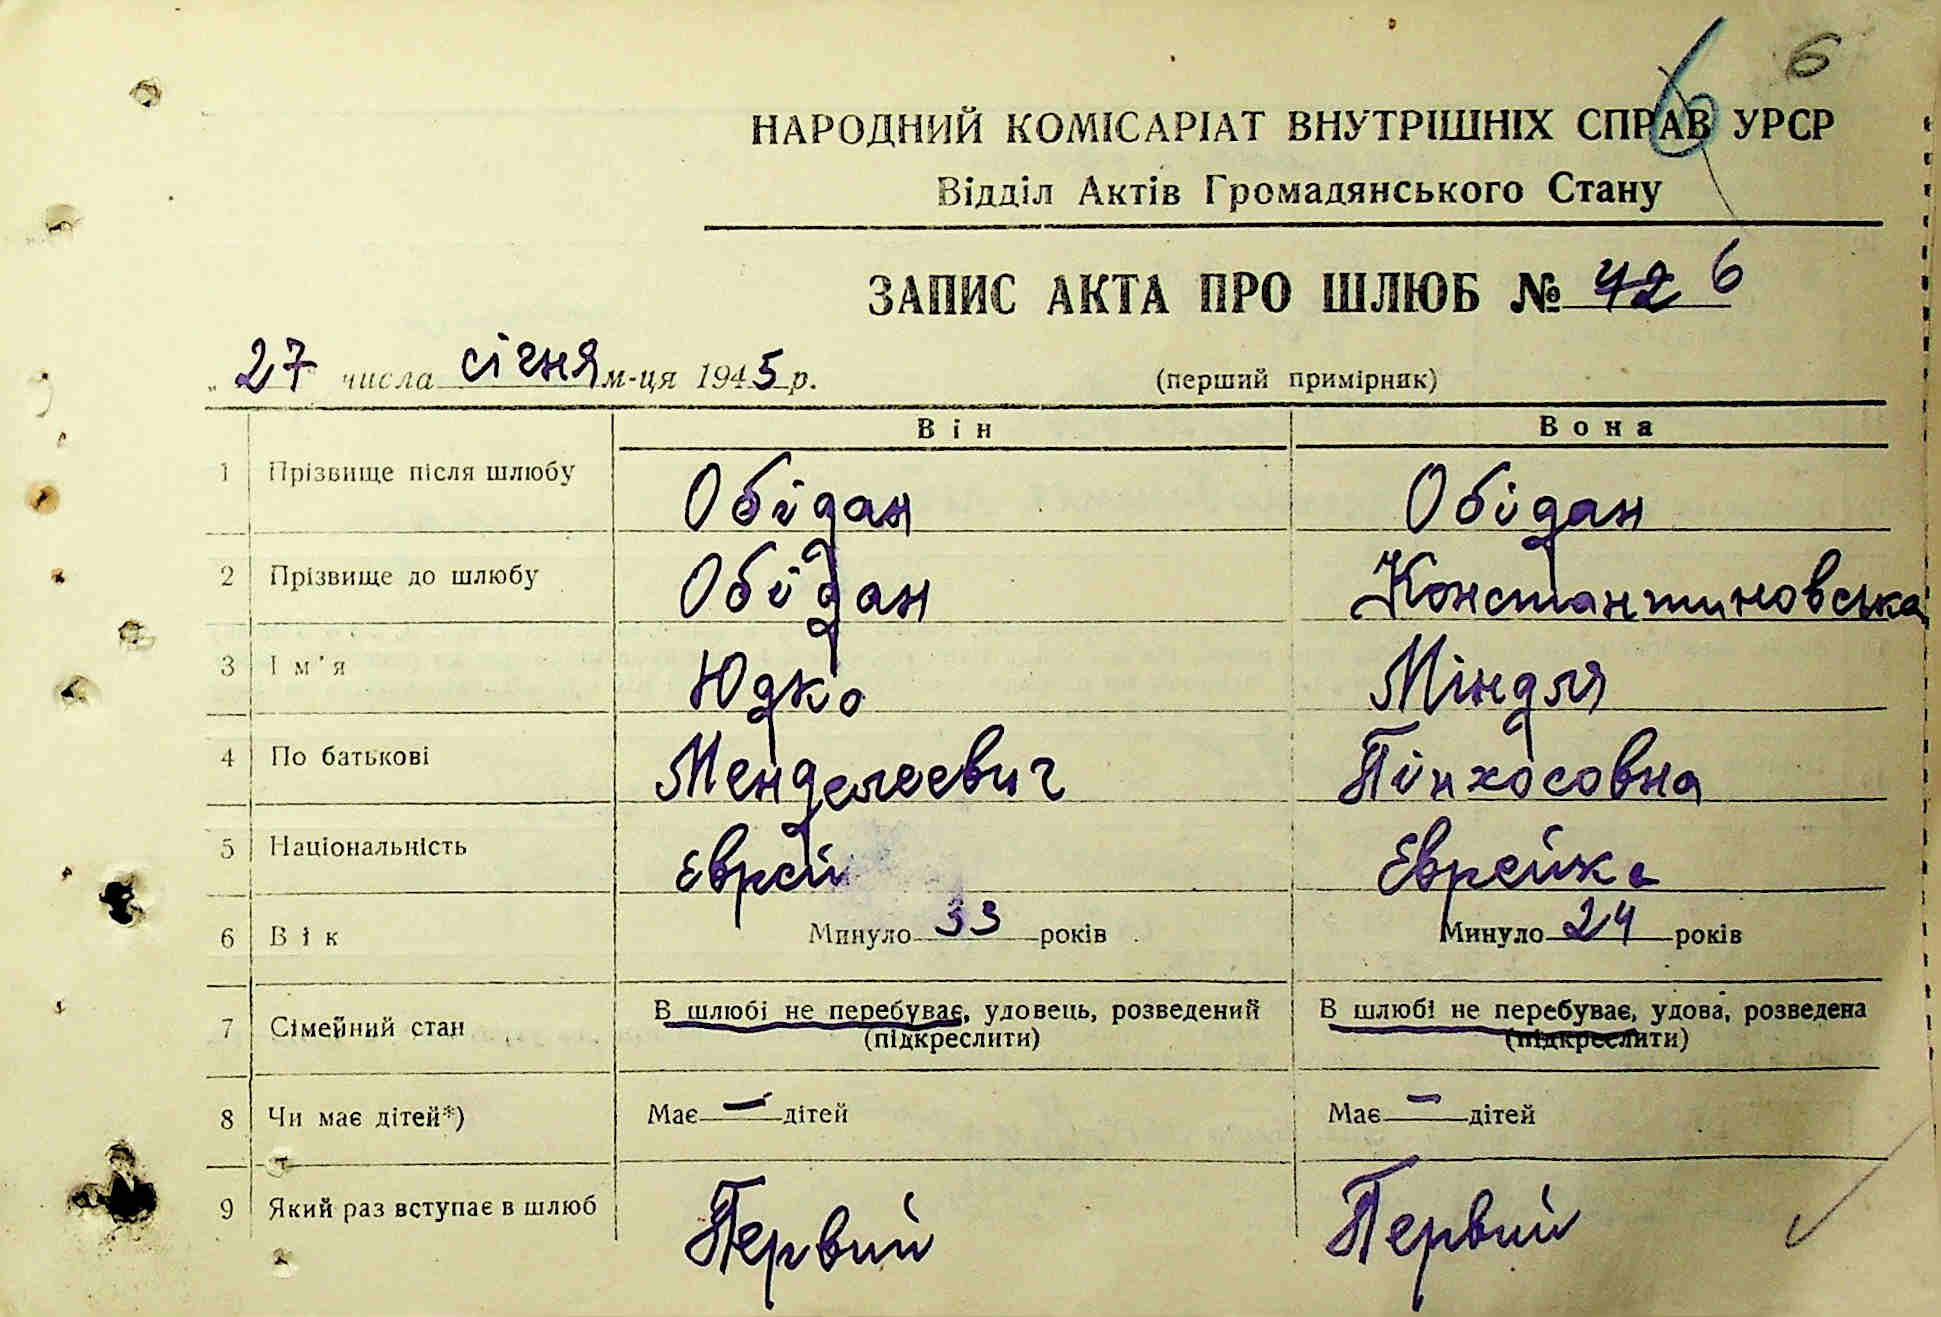 6 6
НАРОДНИЙ КОМІСАРІАТ ВНУТРІШНІХ СПРАВ УРСР
Відділ Актів Громадянського Стану
ЗАПИС АКТА ПРО ШЛЮБ № 42 6
„ 27 числа січня м-ця 1945 р. (перший примірник)
Він Вона
1 Прізвище після шлюбу Обідан Обідан
2 Прізвище до шлюбу Обідан Константиновська
3 Ім'я Юдко Міндля
4 По батькові Менделеевич Пінхосовна
5 Національність Єврей Єврейка
6 Вік Минуло 33 років Минуло 24 років
7 Сімейний стан В шлюбі не перебуває, удовець, розведений (підкреслити) В шлюбі не перебуває, удова, розведена (підкреслити)
8 Чи має дітей*) Має — дітей Має — дітей
9 Який раз вступає в шлюб Первий Первий